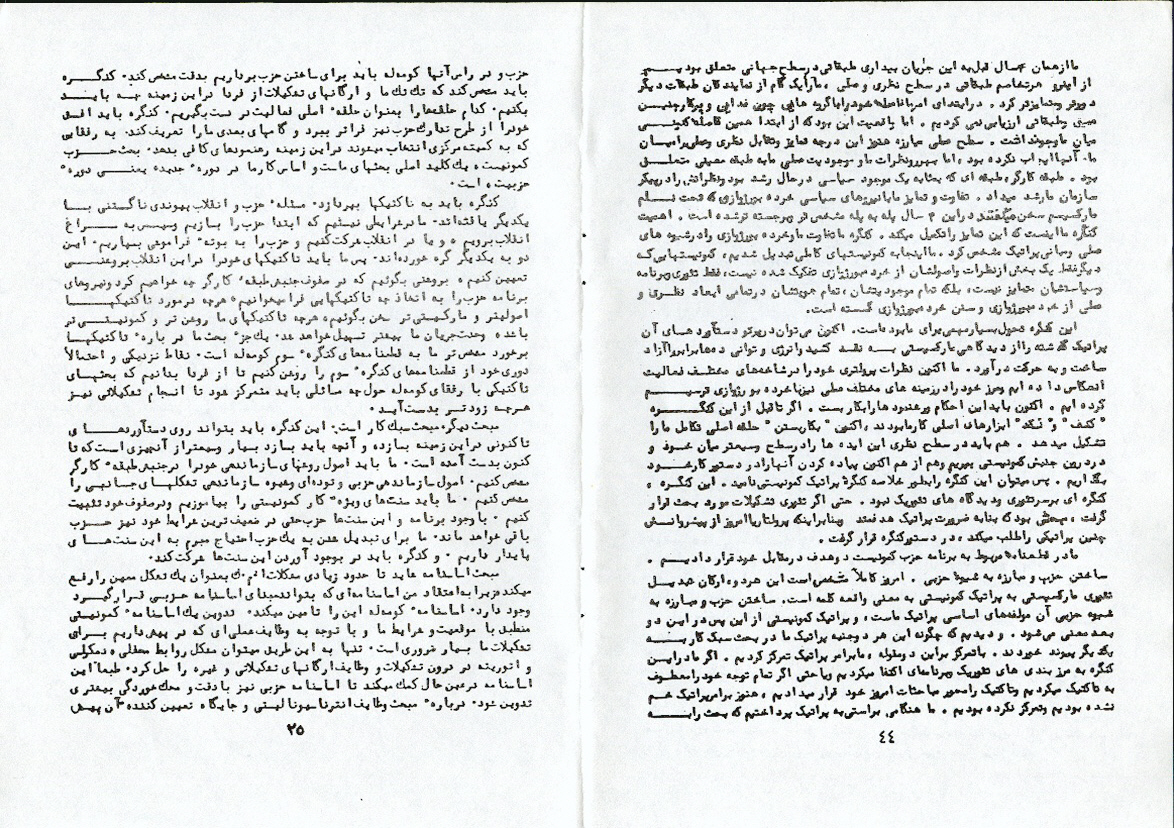 ما از همان ۴ سال قبل به این جریان بیداری طبقاتی در سطح جهانی متعلق بودیم
از اینرو هر تخاصم طبقاتی در سطح نظری و عملی ، ما را یک گام از نمایندگان طبقات دیگر
دورتر و متمایزتر کرد . در ابتدای امر ما فاصله خود را با گروه هایی چون فدایی و پیکار چنین
عینی و طبقاتی ارزیابی نمی کردیم . اما واقعیت این بود که از ابتدا همین فاصله کنونی
میان ما وجود داشت . سطح عملی مبارزه هنوز این درجه تمایز و تقابل نظری و عملی را میان
ما و آنها ایجاب نکرده بود ، اما سیر نظرات ما و موجودیت عملی ما به طبقه معینی متعلق
بود . طبقه کارگر ، طبقه ای که بمثابه یک موجود سیاسی در حال رشد بود و نظراتش را در پیکر
سازمان ما رشد میداد . تفاوت و تمایز ما با نیروهای سیاسی خرده بورژوازی که تحت نام
مارکسیسم سخن میگفتند در این ۴ سال پله به پله مشخص تر و برجسته تر شده است . اهمیت
کنگره ما اینست که این تمایز را تکمیل میکند . کنگره ما تفاوت ما و خرده بورژوازی را در شیوه های
عملی و مبانی پراتیک مشخص کرد . ما اینجا به کمونیستهای کاملی تبدیل شدیم ، کمونیستهایی که
دیگر فقط یک بخش از نظرات و اصولشان از خرده بورژوازی تفکیک شده نیست ، فقط تئوری و برنامه
و سیاستشان متمایز نیست ، بلکه تمام موجودیتشان ، تمام هویتشان در تمامی ابعاد نظری و
عملی از خرده بورژوازی و سنن خرده بورژوازی گسسته است .
این کنگره تحول بسیار مهمی برای ما بوده است . اکنون می توان در پرتو دستآوردهای آن
پراتیک گذشته را از دیدگاهی مارکسیستی به نقد کشید و انرژی و توانی ده ها برابر را آزاد
ساخت و به حرکت درآورد . ما اکنون نظرات پرولتری خود را در شاخه های مختلف فعالیت
انعکاس داده ایم و مرز خود را در زمینه های مختلف عملی نیز با خرده بورژوازی ترسیم
کرده ایم . اکنون باید این احکام و رهنمودها را بکار بست . اگر تا قبل از این کنگره
"کشف" و "نقد" ابزارهای اصلی کار ما بودند ، اکنون "بکار بستن" حلقه اصلی تکامل ما را
تشکیل میدهد . هم باید در سطح نظری این ایده ها را در سطح وسیعتر میان خود و
در درون جنبش کمونیستی ببریم و هم از هم اکنون پیاده کردن آنها را در دستور کار خود
بگذاریم . پس میتوان این کنگره را بطور خلاصه کنگره پراتیک کمونیستی نامید . این کنگره ،
کنگره ای بر سر تئوری و دیدگاه های تئوریک نبود . حتی اگر تئوری تشکیلات مورد بحث قرار
گرفت ، مبحثی بود که بنا به ضرورت پراتیک هدفمند و بنا بر اینکه پرولتاریا امروز از پیشروانش
چنین پراتیکی را طلب میکند ، در دستور کنگره قرار گرفت .
ما در قطعنامه مربوط به برنامه حزب کمونیست دو هدف در مقابل خود قرار دادیم .
ساختن حزب و مبارزه به شیوه حزبی . امروز کاملاً مشخص است این هر دو ، ارکان تبدیل
تئوری مارکسیستی به پراتیک کمونیستی به معنی واقعی کلمه است . ساختن حزب و مبارزه به
شیوه حزبی آن مولفه های اساسی پراتیک ماست ، و پراتیک کمونیستی از این پس در این دو
بعد معنی می شود . و دیدیم که چگونه این هر دو جنبه پراتیک ما در بحث سبک کار به
یکدیگر پیوند خوردند . با تمرکز بر این دو مقوله ، ما بر امر پراتیک تمرکز کردیم . اگر ما در این
کنگره به مرزبندی های تئوریک و برنامه ای اکتفا میکردیم و یا حتی اگر تمام توجه خود را معطوف
به تاکتیک میکردیم و تاکتیک را محور مباحثات امروز خود قرار میدادیم ، هنوز بر امر پراتیک خم
نشده بودیم و تمرکز نکرده بودیم . ما هنگامی براستی به پراتیک پرداختیم که بحث را به
٤٤
حزب و در راس آنها کومه‌له باید برای ساختن حزب برداریم بدقت مشخص کند. کنگره
باید مشخص کند که تک تک ما و ارگانهای تشکیلات از فردا در این زمینه چه باید
بکنیم. کدام حلقه‌ها را بعنوان حلقهٔ اصلی فعالیت در دست بگیریم. کنگره باید افق
خود را از طرح تدارک حزب نیز فراتر ببرد و گامهای بعدی ما را تعریف کند. به رفقایی
که به کمیته مرکزی انتخاب میشوند در این زمینه رهنمودهای کافی بدهد. بحث حزب
کمونیست یک کلید اصلی بحثهای ماست و اساس کار ما در دورهٔ جدید یعنی دورهٔ
حزبیت است.
کنگره باید به تاکتیکها بپردازد. مسئلهٔ حزب و انقلاب پیوندی ناگسستنی با
یکدیگر یافته‌اند. ما در شرایطی نیستیم که ابتدا حزب را بسازیم و سپس به سراغ
انقلاب برویم و یا در انقلاب شرکت کنیم و حزب را به بوتهٔ فراموشی بسپاریم. این
دو به یکدیگر گره خورده‌اند. پس ما باید تاکتیکهای خود را در این انقلاب بروشنی
تعیین کنیم و بروشنی بگوئیم که در صفوف جنبش طبقهٔ کارگر چه خواهیم کرد و نیروهای
برنامه حزب را به اتخاذ چه تاکتیکهایی فرا میخوانیم هرچه در مورد تاکتیکها
اصولی‌تر و مارکسیستی‌تر سخن بگوئیم، هرچه تاکتیکهای ما روشن‌تر و کمونیستی‌تر
باشد وحدت جریان ما بیشتر تسهیل خواهد شد. یک جزء بحث ما در بارهٔ تاکتیکها
برخورد مشخص‌تر ما به قطعنامه‌های کنگرهٔ سوم کومه‌له است. نقاط نزدیکی و احتمالاً
دوری خود از قطعنامه‌های کنگرهٔ سوم را روشن کنیم تا از فردا بدانیم که بحثهای
تاکتیکی با رفقای کومه‌له حول چه مسائلی باید متمرکز شود تا انسجام تشکیلاتی نیز
هرچه زودتر بدست آید.
مبحث دیگر، مبحث سبک کار است. این کنگره باید بتواند روی دستآوردهای
تاکنونی در این زمینه بسازد و آنچه باید بسازد بسیار وسیعتر از آنچیزی است که تا
کنون بدست آمده است. ما باید اصول روشهای سازماندهی خود را در جنبش طبقهٔ کارگر
مشخص کنیم. اصول سازماندهی حزبی و توده‌ای و شیوه سازماندهی تشکلهای جانبی را
مشخص کنیم. ما باید سنت‌های ویژهٔ کار کمونیستی را بیاموزیم و در صفوف خود تثبیت
کنیم. با وجود برنامه و این سنت‌ها حزب حتی در ضعیف‌ترین شرایط خود نیز حزب
باقی خواهد ماند. ما برای تبدیل شدن به یک حزب احتیاج مبرم به این سنت‌های
پایدار داریم. و کنگره باید در بوجود آوردن این سنت‌ها شرکت کند.
مبحث اساسنامه شاید تا حدود زیادی مشکلات ا.م.ک بعنوان یک تشکل معین را رفع
میکند زیرا به اعتقاد من اساسنامه‌ای که بتواند مبنای اساسنامه حزبی قرار گیرد
وجود دارد. اساسنامهٔ کومه‌له این را تامین میکند. تدوین یک اساسنامهٔ کمونیستی
منطبق با موقعیت و شرایط ما و با توجه به وظایف عملی‌ای که در پیش داریم برای
تشکیلات ما بسیار ضروری است. تنها به این طریق میتوان مشکل روابط محفلی، دمکراسی
و اتوریته در درون تشکیلات و وظایف ارگانهای تشکیلاتی و غیره را حل کرد. طبعاً این
اساسنامه در عین حال کمک میکند تا اساسنامه حزبی نیز با دقت و محک خوردگی بیشتری
تدوین شود. دربارهٔ مبحث وظایف انترناسیونالیستی و جایگاه تعیین کنندهٔ آن پیش
۲۵